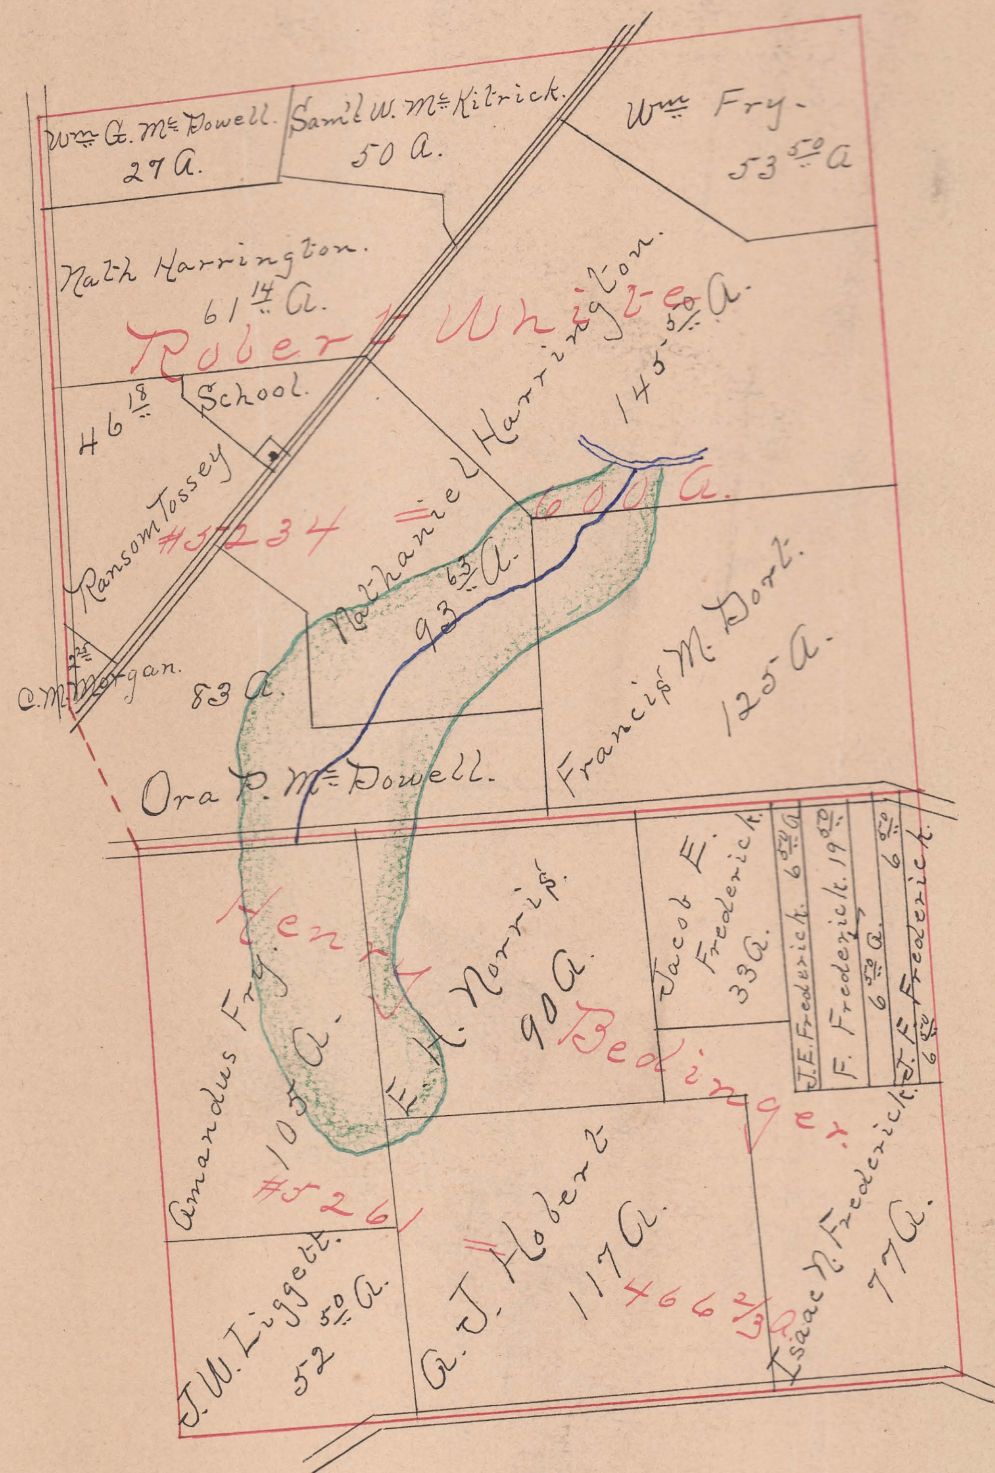 Wm G. Mc Dowell.
27 A.
Sam'l W. Mc Kitrick.
50 A.
Wm Fry.
53 50 A
Nath Harrington.
61 14 A.
Robert White
#5234 = 600 A.
46 18
School.
Ransom Tossey
C. M. Morgan.
Nathaniel Harrington.
145 50 A.
93 63 A.
83 A.
Ora P. Mc Dowell.
Francis M. Dort.
125 A.
Henry Bedinger.
#5261 = 466 2/3 A.
Amandus Fry.
105 A.
E. H. Norris.
90 A.
Jacob E.
Frederick.
33 A.
J. E. Frederick. 6 50 A
F. Frederick. 19 50
6 50 A.
6 50
J. F. Frederick.
6 50
J. W. Liggett.
52 50 A.
A. J. Hobert
117 A.
Isaac N. Frederick.
77 A.